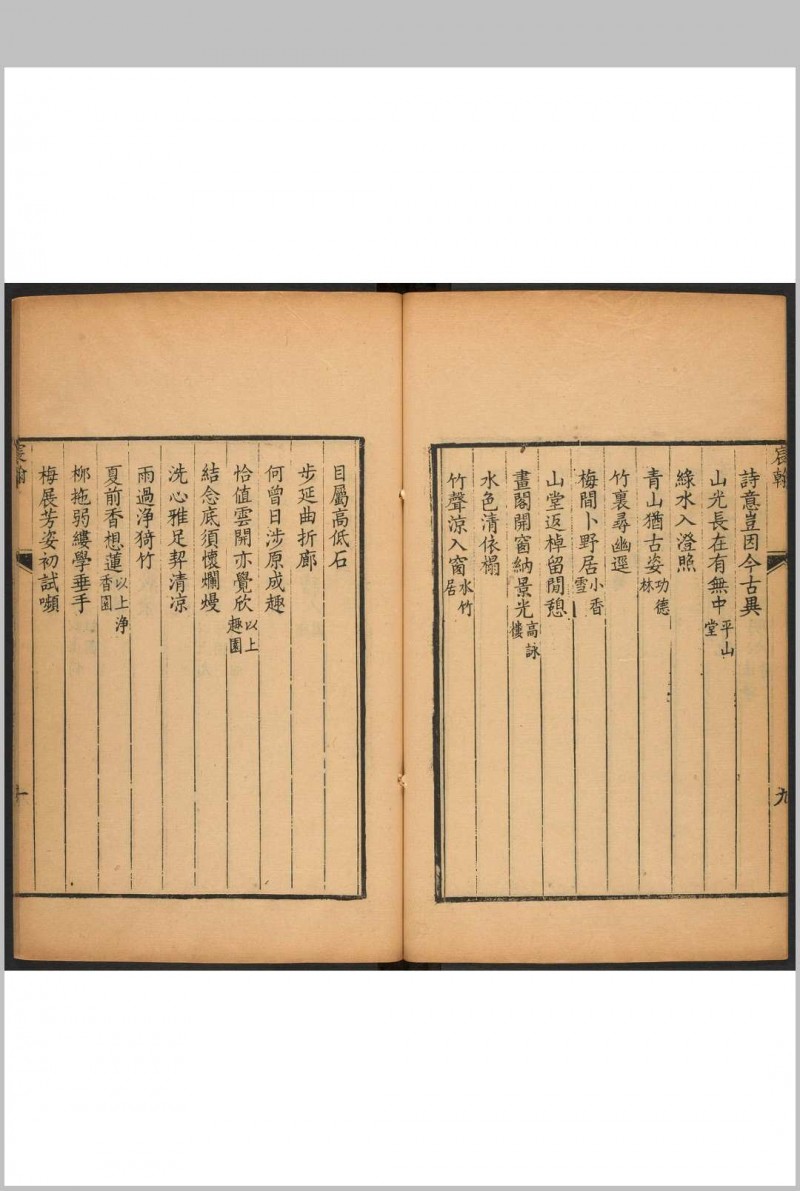 宸翰
九
詩意豈因今古異
山光長在有無中平山堂
綠水入澄照
青山猶古姿功德林
竹裏尋幽逕
梅間卜野居小香雪
山堂返棹留閒憩
畫閣開窗納景光高詠樓
水色清依榻
竹聲涼入窗水竹居
目屬高低石
步延曲折廊
何曾日涉原成趣
恰值雲開亦覺欣以上趣園
結念底須懷爛熳
洗心雅足契清凉
雨過淨猗竹
夏前香想蓮以上淨香園
柳拖弱縷學垂手
梅展芳姿初試嚬
宸翰